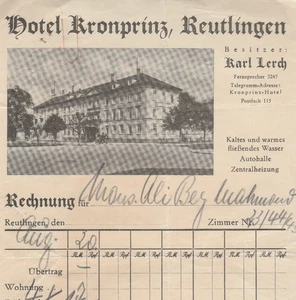 Hotel Kronprinz, Reutlingen
Besitzer:
Karl Lerch
Fernsprecher 3247
Telegramm-Adresse:
Kronprinz-Hotel
Postfach 115
Kaltes und warmes
fließendes Wasser
Autohalle
Zentralheizung
Rechnung für Mons. Ali Bey Mahmoud
Reutlingen, den Zimmer Nr.
Aug. 20
R.M. Rpf. R.M. Rpf. R.M. Rpf. R.M. Rpf. R.M. Rpf. R.M. Rpf. R.M. Rpf.
Übertrag
Wohnung